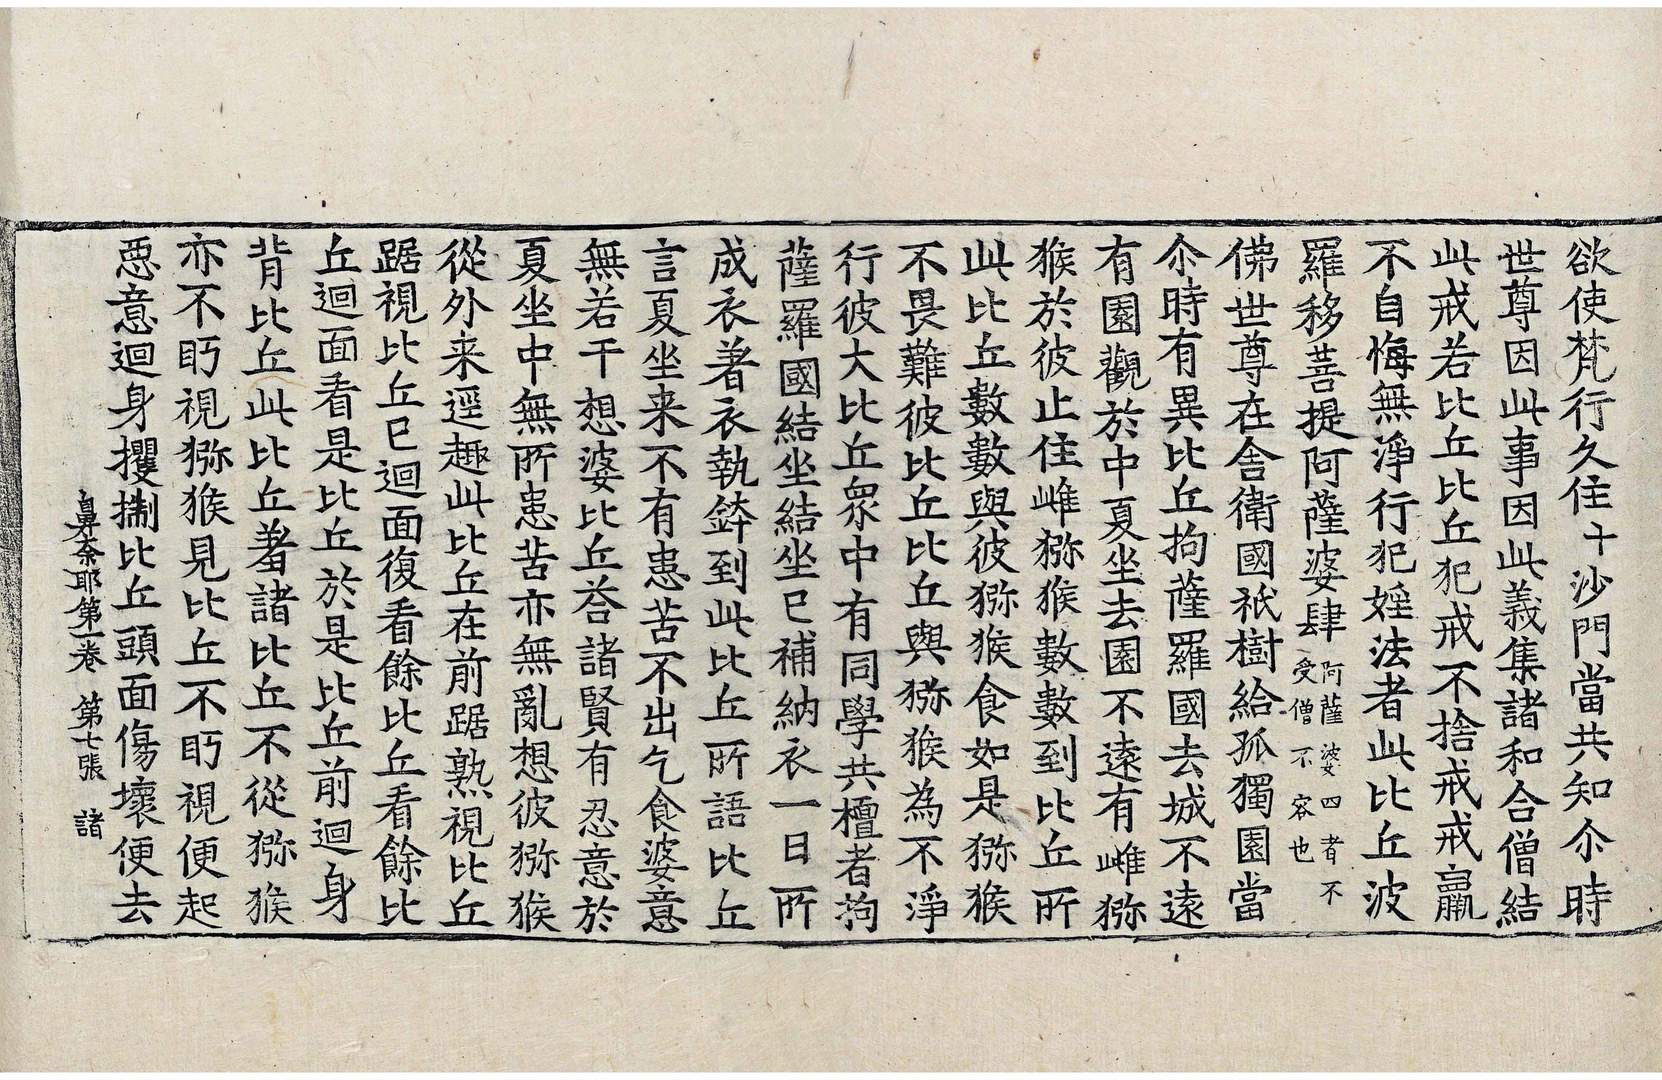 欲使梵行久住十沙門當共知尒時
世尊因此事因此義集諸和合僧結
此戒若比丘比丘犯戒不捨戒戒羸
不自悔無淨行犯婬法者此比丘波
羅移菩提阿薩婆肆阿薩婆四者不受僧不容也
佛世尊在舍衛國祇樹給孤獨園當
尒時有異比丘拘薩羅國去城不遠
有園觀於中夏坐去園不遠有雌猕
猴於彼止住雌猕猴數數到比丘所
此比丘數數與彼猕猴食如是猕猴
不畏難彼比丘比丘與猕猴為不淨
行彼大比丘眾中有同學共檀者拘
薩羅國結坐結坐已補納衣一日所
成衣著衣執鉢到此比丘所語比丘
言夏坐来不有患苦不出乞食婆意
無若干想婆比丘荅諸賢有忍意於
夏坐中無所患苦亦無亂想彼猕猴
從外来逕趣此比丘在前踞熟視比丘
踞視比丘已迴面復看餘比丘看餘比
丘迴面看是比丘於是比丘前迴身
背比丘此比丘羞諸比丘不從猕猴
亦不眄視猕猴見比丘不眄視便起
惡意迴身攫㨷比丘頭面傷壞便去
鼻奈耶第一卷 第七張 諸